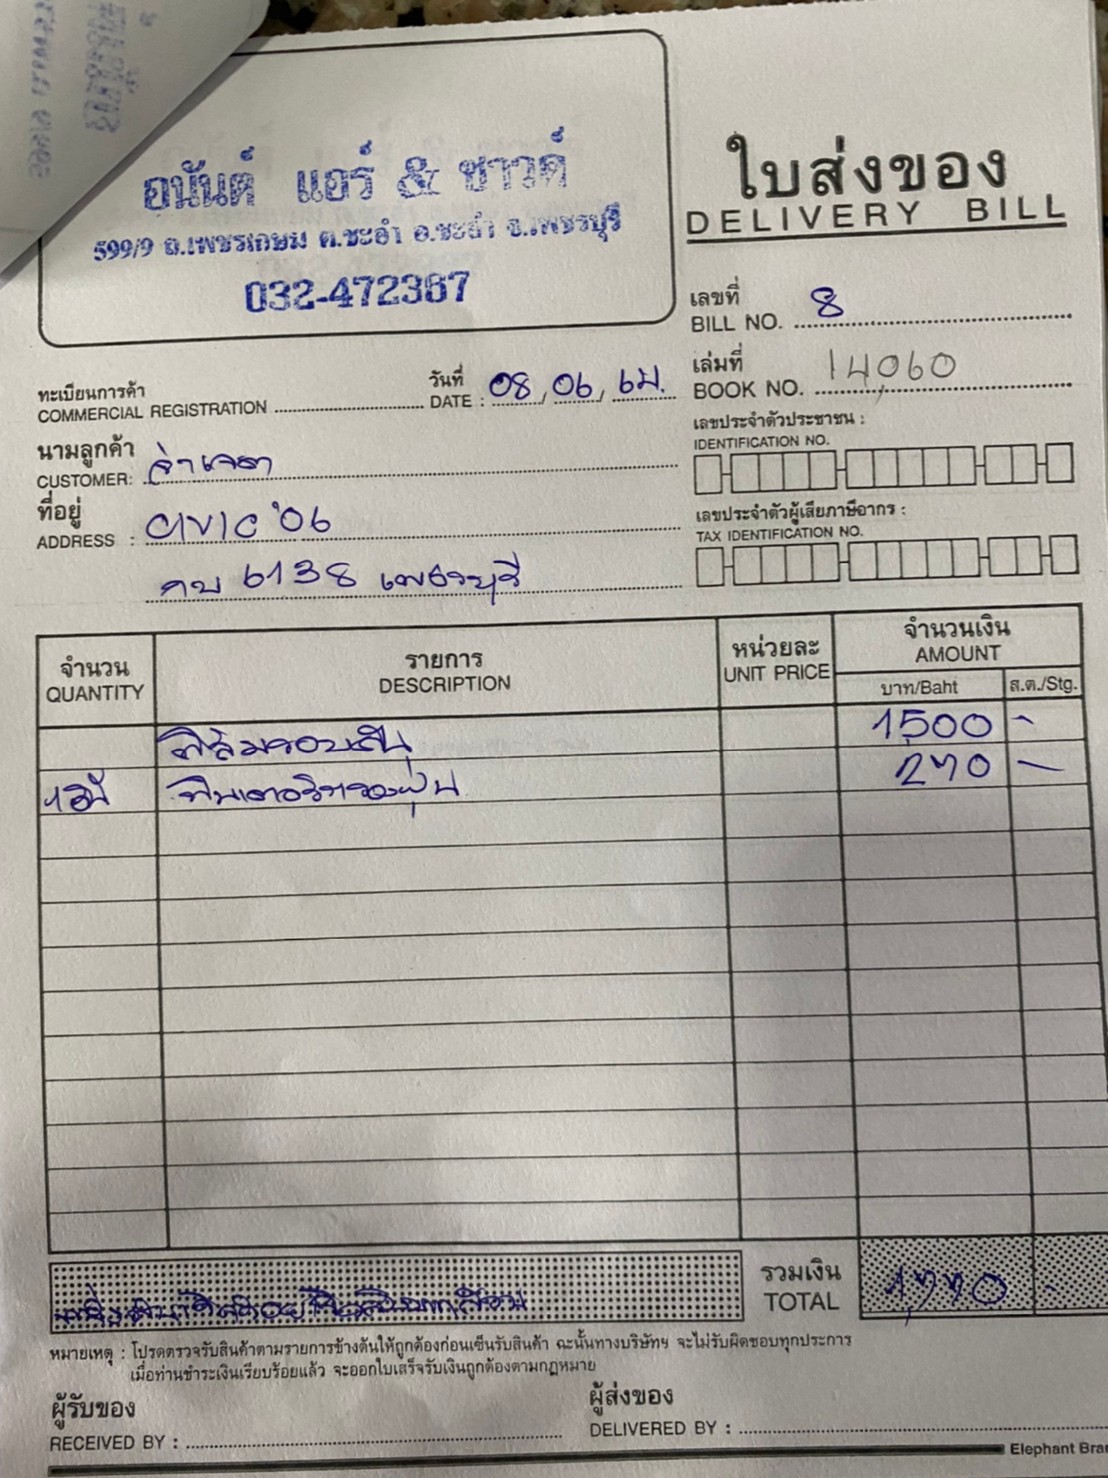 อนันต์ แอร์ & ซาวด์
599/9 ถ.เพชรเกษม ต.ชะอำ อ.ชะอำ จ.เพชรบุรี
032-472367
ใบส่งของ
DELIVERY BILL
เลขที่
BILL NO. 8
เล่มที่
BOOK NO. 14,060
ทะเบียนการค้า
COMMERCIAL REGISTRATION
วันที่
DATE : 08, 06, 64.
เลขประจำตัวประชาชน :
IDENTIFICATION NO.
นามลูกค้า
CUSTOMER:
ที่อยู่
ADDRESS : CIVIC '06
กบ 6138 เพชรบุรี
เลขประจำตัวผู้เสียภาษีอากร :
TAX IDENTIFICATION NO.
จำนวน รายการ หน่วยละ จำนวนเงิน
QUANTITY DESCRIPTION UNIT PRICE AMOUNT
บาท/Baht ส.ต./Stg.
ฟิล์มรอบคัน 1,500 -
ฟิลเตอร์กรองฝุ่น 270 -
รวมเงิน
TOTAL 1,770 -
หมายเหตุ : โปรดตรวจรับสินค้าตามรายการข้างต้นให้ถูกต้องก่อนเซ็นรับสินค้า ฉะนั้นทางบริษัทฯ จะไม่รับผิดชอบทุกประการ
เมื่อท่านชำระเงินเรียบร้อยแล้ว จะออกใบเสร็จรับเงินถูกต้องตามกฎหมาย
ผู้รับของ
RECEIVED BY :
ผู้ส่งของ
DELIVERED BY :
Elephant Bra